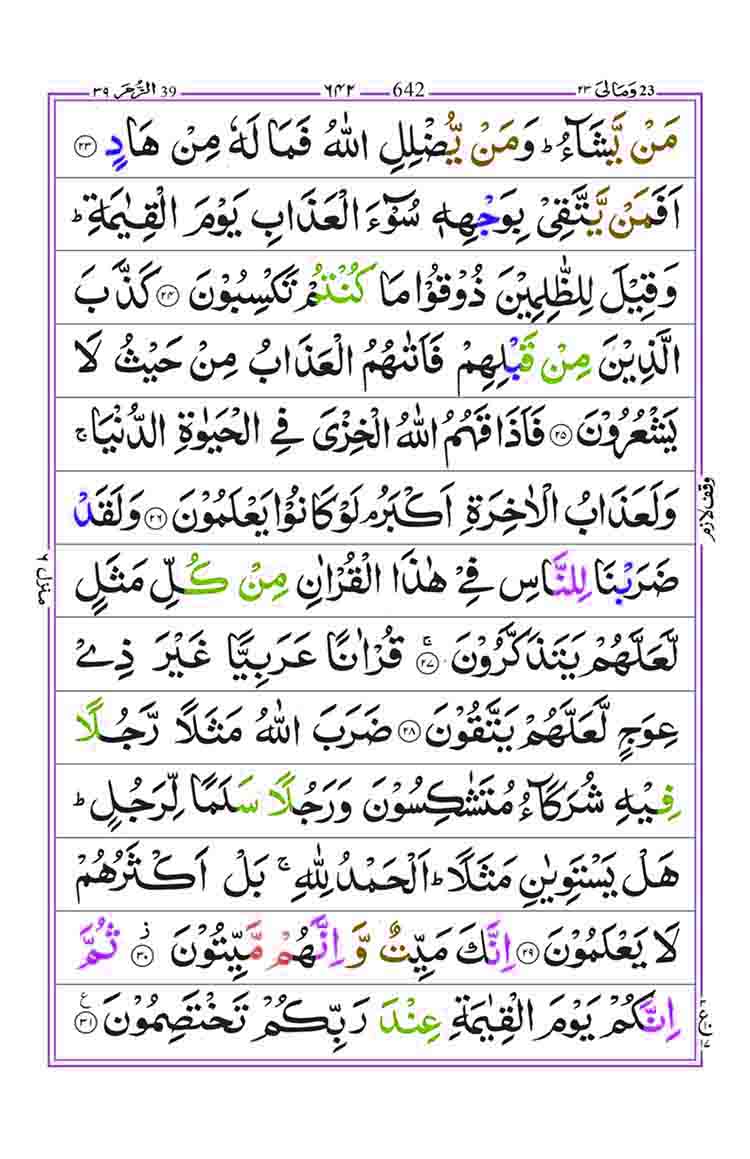 ٣٩ الزُّمَر 39 ٦٤٢ 642 ٢٣ وَمَالِىَ 23
مَنْ يَّشَآءُ ؕ وَمَنْ يُّضْلِلِ اللّٰهُ فَمَا لَهٗ مِنْ هَادٍ ﴿٢٣﴾
اَفَمَنْ يَّتَّقِىْ بِوَجْهِهٖ سُوْٓءَ الْعَذَابِ يَوْمَ الْقِيٰمَةِ ؕ
وَقِيْلَ لِلظّٰلِمِيْنَ ذُوْقُوْا مَا كُنْتُمْ تَكْسِبُوْنَ ﴿٢٤﴾ كَذَّبَ
الَّذِيْنَ مِنْ قَبْلِهِمْ فَاَتٰىهُمُ الْعَذَابُ مِنْ حَيْثُ لَا
يَشْعُرُوْنَ ﴿٢٥﴾ فَاَذَاقَهُمُ اللّٰهُ الْخِزْىَ فِى الْحَيٰوةِ الدُّنْيَا ۚ
وَلَعَذَابُ الْاٰخِرَةِ اَكْبَرُ ۘ لَوْ كَانُوْا يَعْلَمُوْنَ ﴿٢٦﴾ وَلَقَدْ
وقف لازم
ضَرَبْنَا لِلنَّاسِ فِىْ هٰذَا الْقُرْاٰنِ مِنْ كُلِّ مَثَلٍ
منزل ٦
لَّعَلَّهُمْ يَتَذَكَّرُوْنَ ﴿٢٧﴾ قُرْاٰنًا عَرَبِيًّا غَيْرَ ذِىْ
عِوَجٍ لَّعَلَّهُمْ يَتَّقُوْنَ ﴿٢٨﴾ ضَرَبَ اللّٰهُ مَثَلًا رَّجُلًا
فِيْهِ شُرَكَآءُ مُتَشٰكِسُوْنَ وَرَجُلًا سَلَمًا لِّرَجُلٍ ؕ
هَلْ يَسْتَوِيٰنِ مَثَلًا ؕ اَلْحَمْدُ لِلّٰهِ ۚ بَلْ اَكْثَرُهُمْ
لَا يَعْلَمُوْنَ ﴿٢٩﴾ اِنَّكَ مَيِّتٌ وَّاِنَّهُمْ مَّيِّتُوْنَ ﴿٣٠﴾ ثُمَّ
اِنَّكُمْ يَوْمَ الْقِيٰمَةِ عِنْدَ رَبِّكُمْ تَخْتَصِمُوْنَ ﴿٣١﴾
ع ١٧